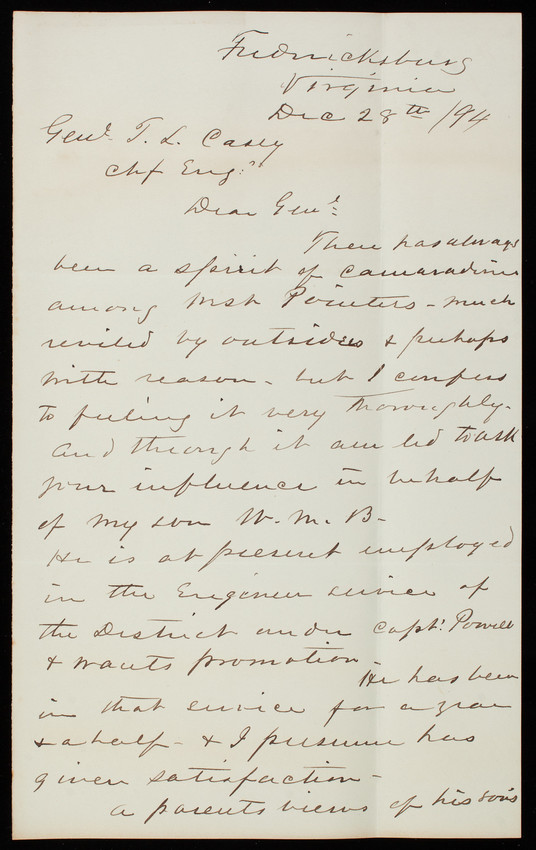 Fredricksburg
Virginia
Dec 28th /94
Genl. T. L. Casey
Chf Engrs
Dear Genl:
There has always
been a spirit of camaradirie
among West Pointers - much
reviled by outsiders & perhaps
with reason - but I confess
to feeling it very thoroughly -
and through it am led to ask
your influence in behalf
of my son W. M. B -
He is at present employed
in the Engineer service of
the District under Capt: Powell
& wants promotion
He has been
in that service for a year
& a half - & I presume has
given satisfaction -
a parents views of his son's